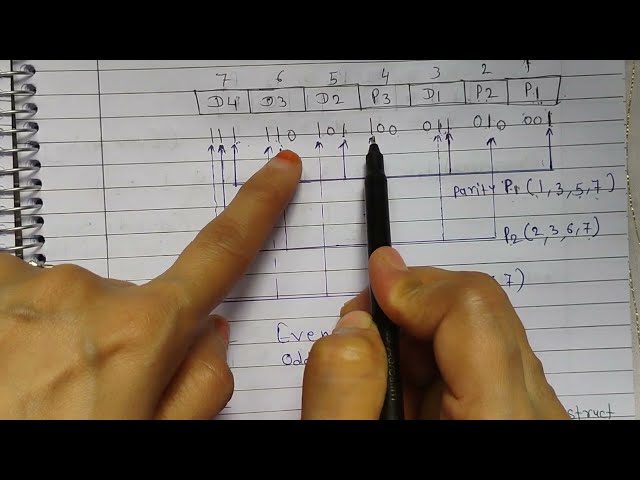 7 6 5 4 3 2 1
D4 D3 D2 P3 D1 P2 P1
111 110 101 100 011 010 001
Parity P1 (1,3,5,7)
P2 (2,3,6,7)
,7)
Even
struct